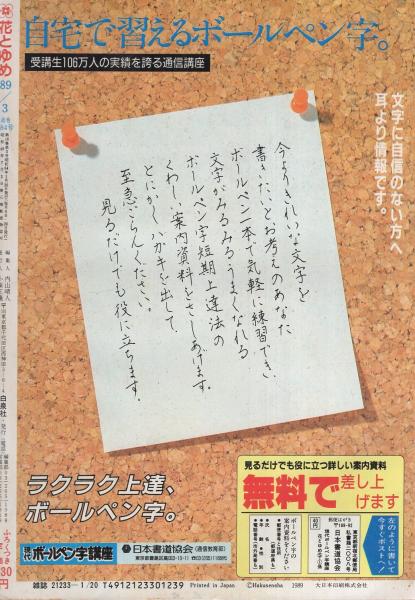 自宅で習えるボールペン字。
受講生106万人の実績を誇る通信講座
文字に自信のない方へ
耳より情報です。
今よりきれいな文字を
書きたいとお考えのあなた
ボールペン一本で気軽に練習でき、
文字がみるみるうまくなれる
ボールペン字短期上達法の
くわしい案内資料をさしあげます。
とにかくハガキを出して、
至急ごらんください。
見るだけでも役に立ちます。
ラクラク上達、
ボールペン字。
現代ボールペン字講座
日本書道協会(通信教育部)
見るだけでも役に立つ詳しい案内資料
無料で差し上げます
左のように書いて
今すぐポストへ!
郵便はがき
40円
日本書道協会
現代ボールペン字講座
案内資料をください
花とゆめ
89
3
編集人 内山晴人
白泉社
雑誌 21233-1/20 T4912123301239 Printed in Japan ©Hakusensha 1989 大日本印刷株式会社